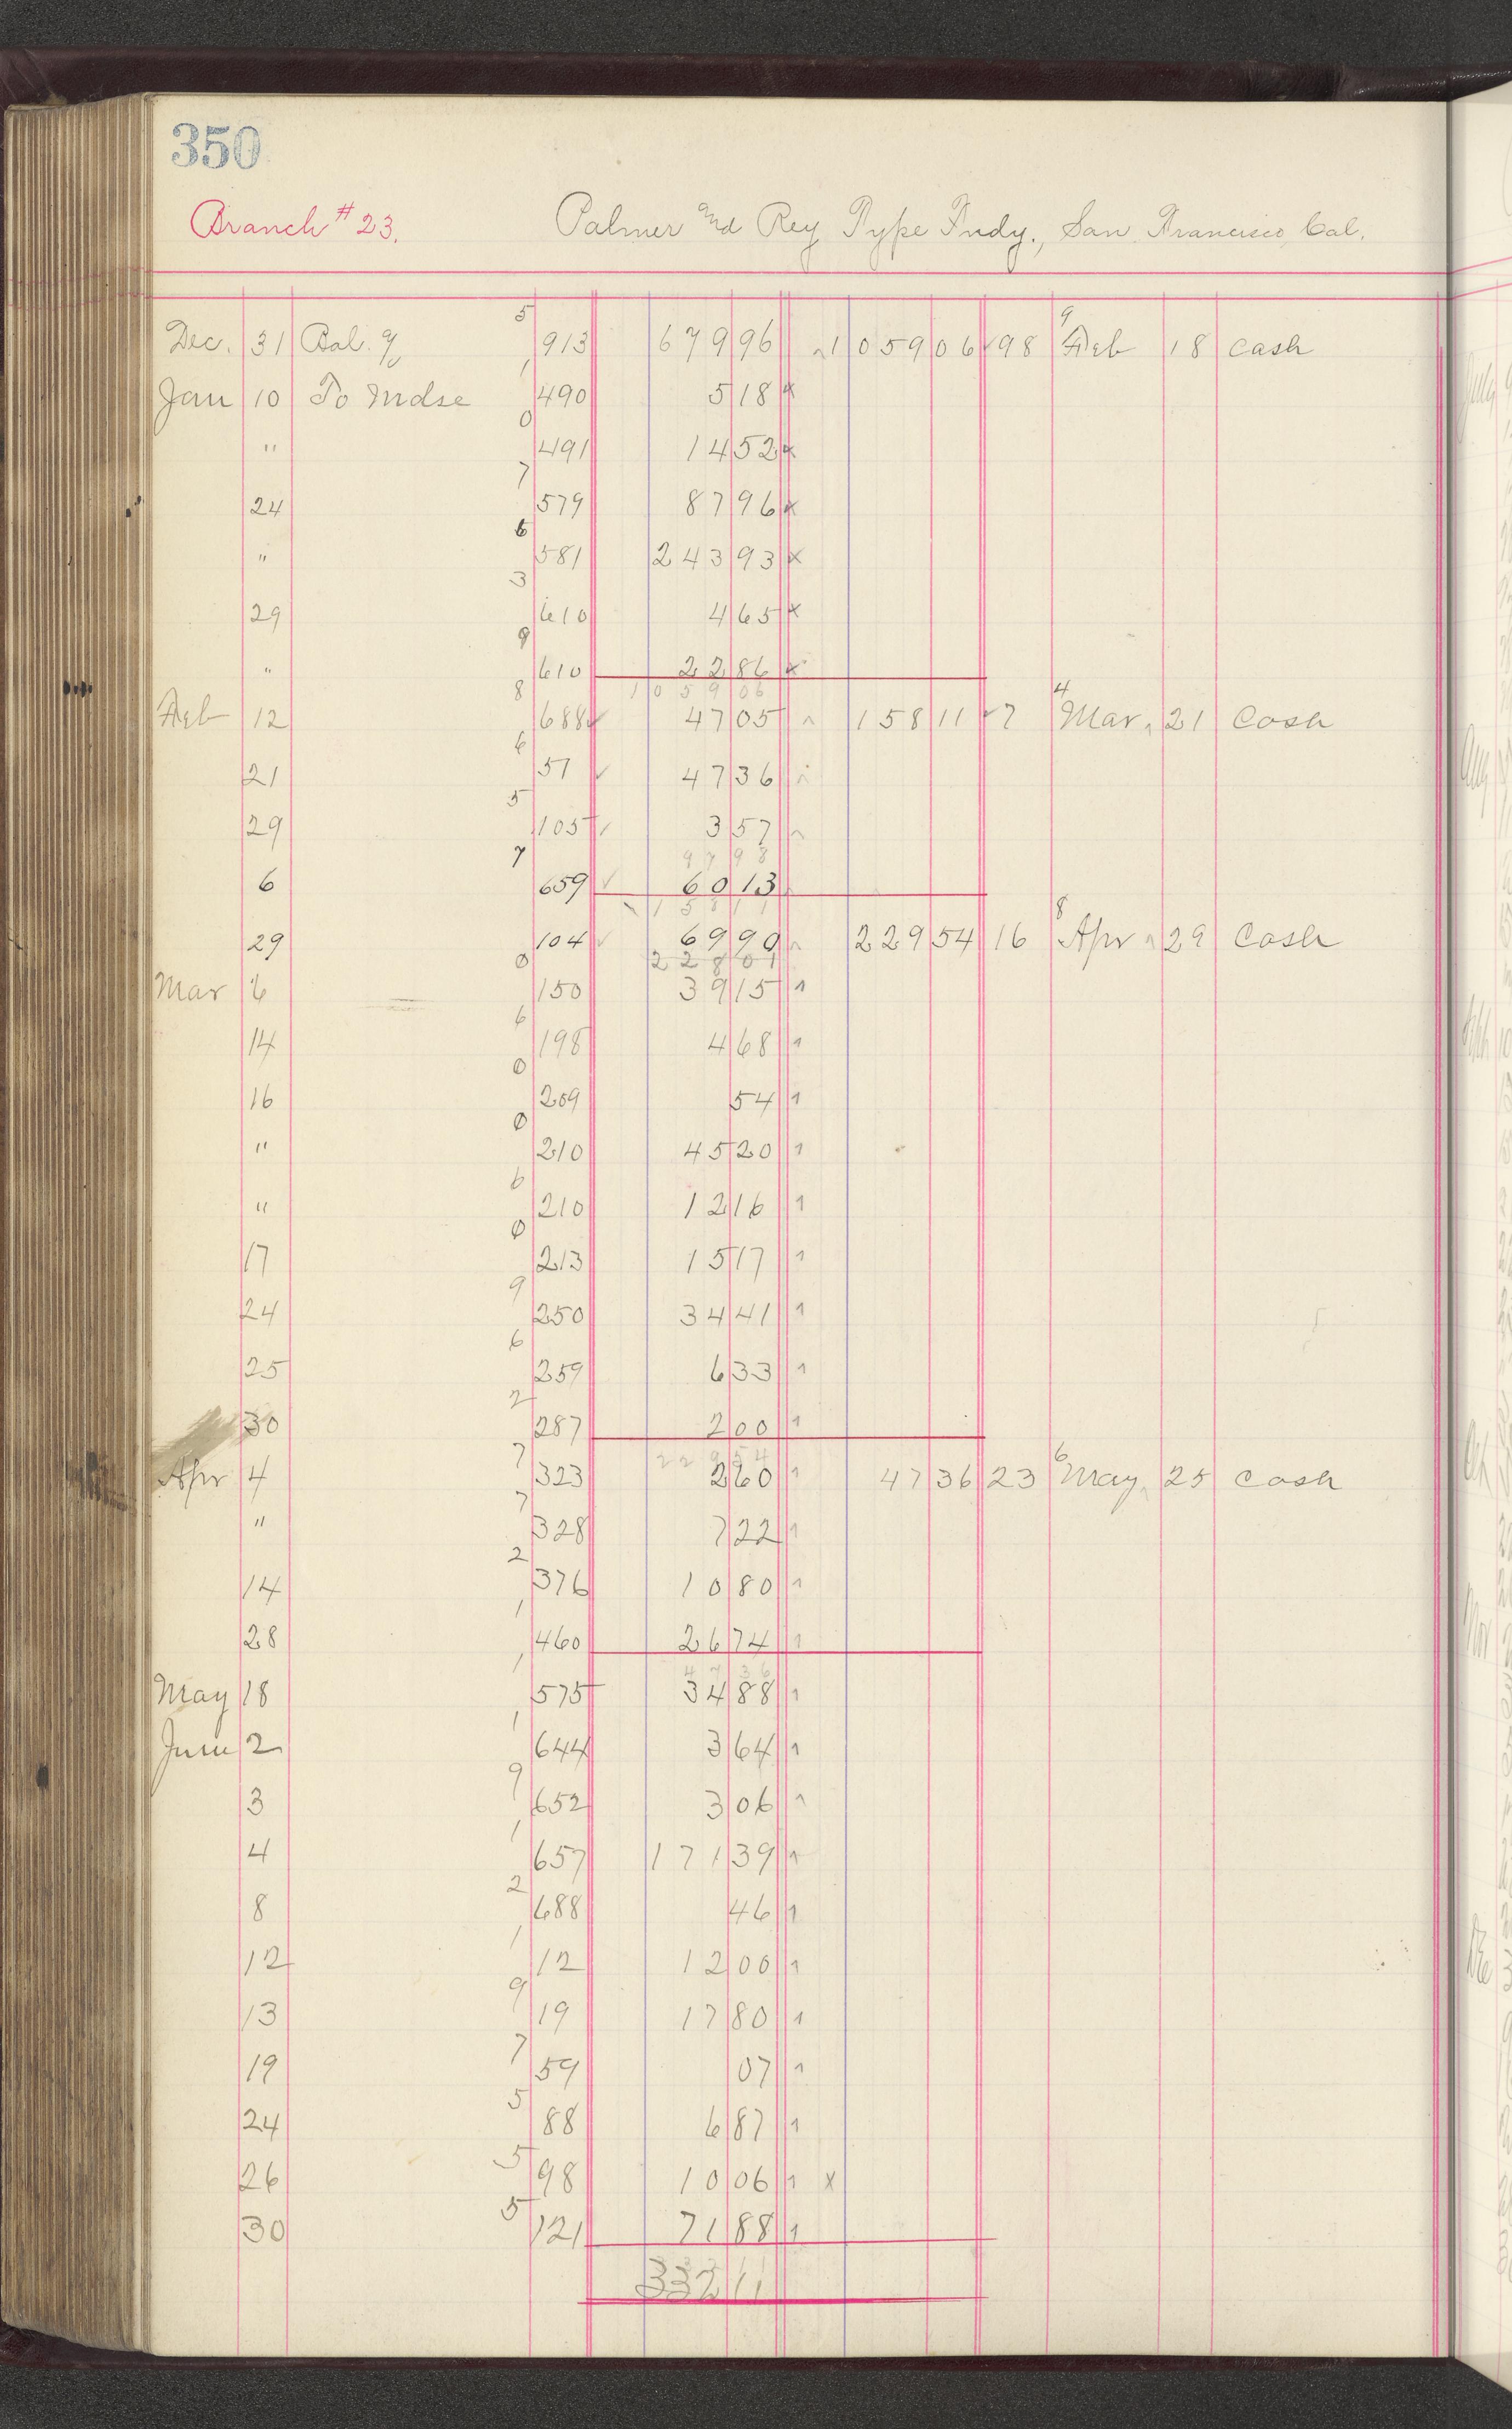 350
Branch # 23. Palmer and Rey Type Fndy., San Francisco Cal.
Dec. 31 Bal. 5 913 679 96 1059 06 98 9 Feb 18 cash
Jan 10 To Mdse 1 490 5 18 x
" 0 491 14 52 x
24 7 579 87 96 x
" 6 581 243 93 x
29 3 610 4 65 x
" 9 610 22 86 x
1059 06
Feb 12 8 688 47 05 158 11 7 4 Mar. 21 Cash
21 6 57 47 36
29 5 105 3 57
97 98
6 7 659 60 13
158 11
29 104 69 90 229 54 16 8 Apr 29 Cash
228 01
Mar 6 0 150 39 15
14 6 198 4 68
16 0 209 54
" 0 210 45 20
" 6 210 12 16
17 0 213 15 17
24 9 250 34 41
25 6 259 6 33
30 2 287 2 00
229 54
Apr 4 7 323 2 60 47 36 23 6 May 25 Cash
" 7 328 7 22
14 2 376 10 80
28 1 460 26 74
47 36
May 18 1 575 34 88
June 2 1 644 3 64
3 9 652 3 06
4 1 657 171 39
8 2 688 46
12 1 12 12 00
13 9 19 17 80
19 7 59 07
24 5 88 6 87
26 5 98 10 06 x
30 5 121 71 88
332 11